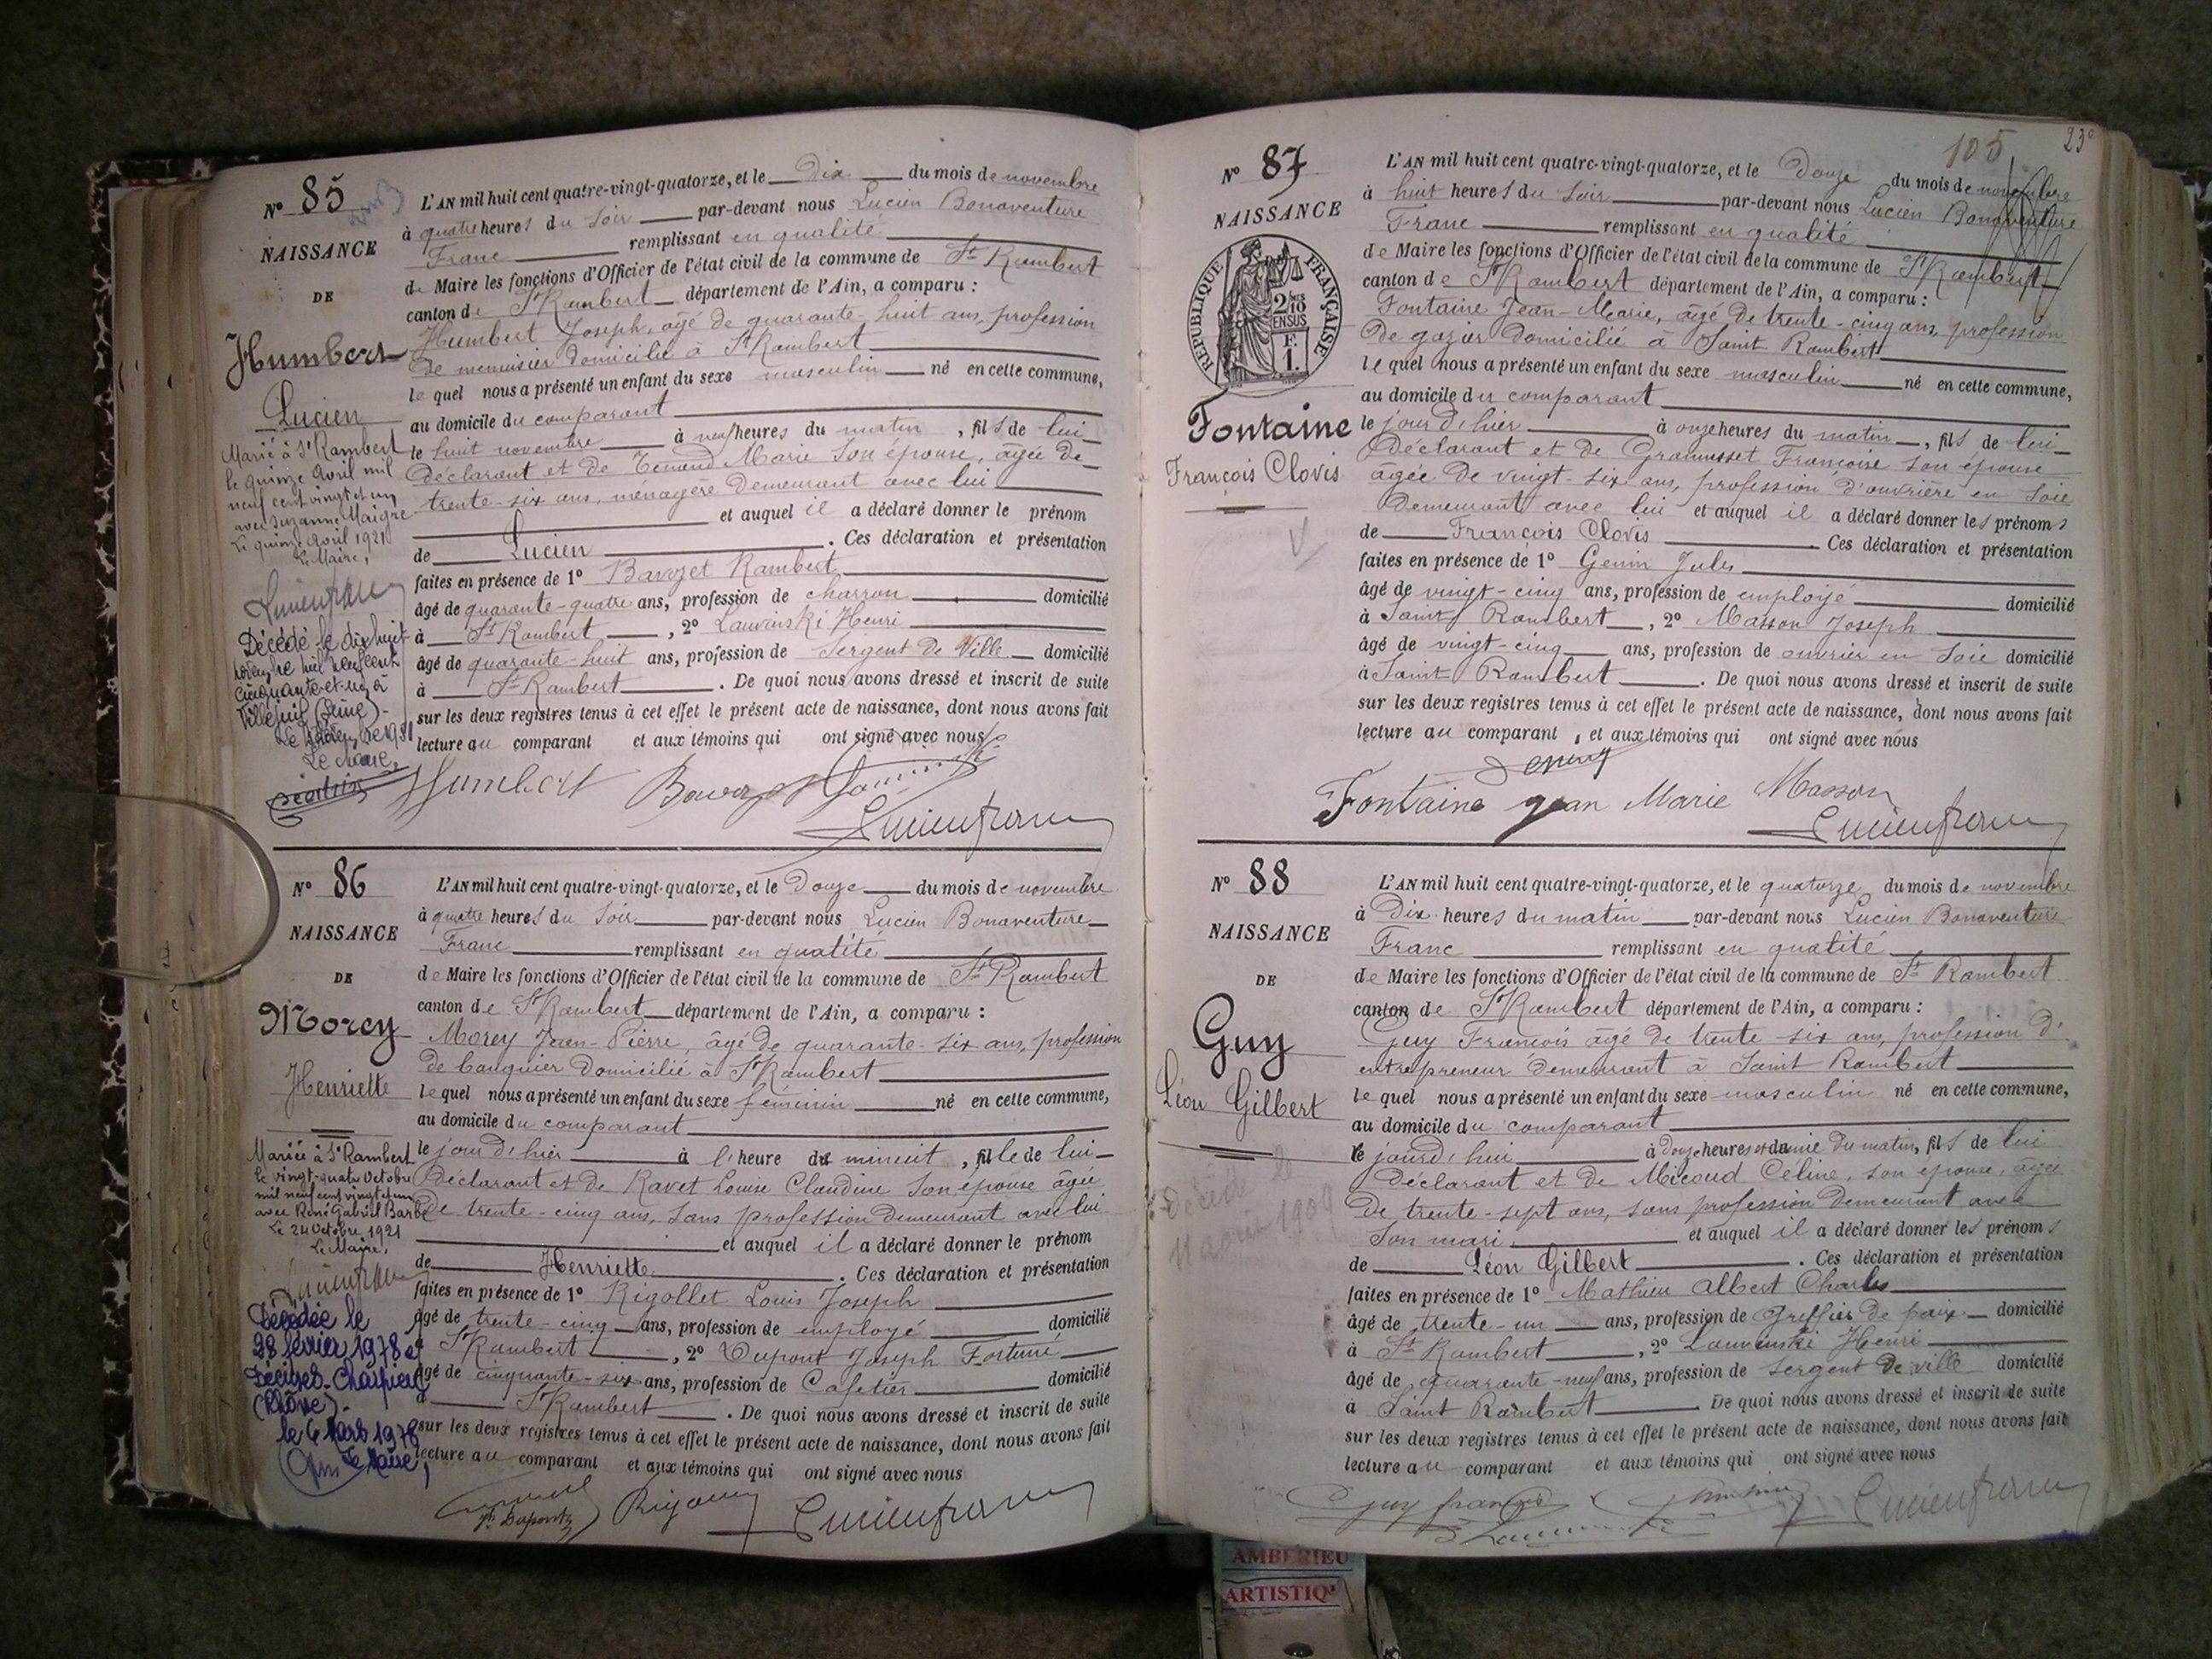 N° 85
NAISSANCE
DE
Humbert
Lucien
Marié à St Rambert
le quinze Avril mil
neuf cent vingt et un
avec Suzanne Maigre
Le quinze Avril 1921
Le Maire,
Lucien franc
Décédé le dix huit
mil neuf cent
cinquante-et-un à
Villejuif (Seine)-
Le 1951
Le Maire,
L'AN mil huit cent quatre-vingt-quatorze, et le Dix du mois de novembre
à quatre heures du Soir par-devant nous Lucien Bonaventure
Franc remplissant en qualité
de Maire les fonctions d'Officier de l'état civil de la commune de St Rambert
canton de St Rambert département de l'Ain, a comparu :
Humbert Joseph, âgé de quarante-huit ans, profession
de menuisier domicilié à St Rambert
lequel nous a présenté un enfant du sexe masculin né en cette commune,
au domicile du comparant
le huit novembre à neuf heures du matin, fils de lui-
Déclarant et de Tenand Marie Son épouse, âgée de
trente-six ans, ménagère demeurant avec lui
et auquel il a déclaré donner le prénom
de Lucien. Ces déclaration et présentation
faites en présence de 1° Bavozet Rambert
âgé de quarante-quatre ans, profession de charron domicilié
à St Rambert, 2° Lawinski Henri
âgé de quarante-huit ans, profession de Sergent de Ville domicilié
à St Rambert. De quoi nous avons dressé et inscrit de suite
sur les deux registres tenus à cet effet le présent acte de naissance, dont nous avons fait
lecture au comparant et aux témoins qui ont signé avec nous
Humbert Bavozet
Lucien franc
N° 86
NAISSANCE
DE
Morey
Henriette
Mariée à St Rambert
le vingt-quatre Octobre
mil neuf cent vingt et un
avec René Gabriel Barbe
Le 24 Octobre 1921
Le Maire,
Lucien franc
Décédée le
28 février 1978 à
Décines-Charpieu
(Rhône)-
le 6 Mars 1978
Le Maire,
L'AN mil huit cent quatre-vingt-quatorze, et le Douze du mois de novembre
à quatre heures du Soir par-devant nous Lucien Bonaventure
Franc remplissant en qualité
de Maire les fonctions d'Officier de l'état civil de la commune de St Rambert
canton de St Rambert département de l'Ain, a comparu :
Morey Jean-Pierre, âgé de quarante-six ans, profession
de banquier domicilié à St Rambert
lequel nous a présenté un enfant du sexe féminin né en cette commune,
au domicile du comparant
le jour d'hier à l'heure de minuit, fille de lui-
Déclarant et de Ravet Louise Claudine Son épouse âgée
de trente-cinq ans, Sans profession demeurant avec lui
et auquel il a déclaré donner le prénom
de Henriette. Ces déclaration et présentation
faites en présence de 1° Rigollet Louis Joseph
âgé de trente-cinq ans, profession de employé domicilié
à St Rambert, 2° Dupont Joseph Fortuné
âgé de cinquante-six ans, profession de Cafetier domicilié
à St Rambert. De quoi nous avons dressé et inscrit de suite
sur les deux registres tenus à cet effet le présent acte de naissance, dont nous avons fait
lecture au comparant et aux témoins qui ont signé avec nous
Jh Dupont
Lucien franc
105
23e
N° 87
NAISSANCE
RÉPUBLIQUE FRANÇAISE
2/10 EN SUS
F. 1.
Fontaine
François Clovis
L'AN mil huit cent quatre-vingt-quatorze, et le Douze du mois de novembre
à huit heures du Soir par-devant nous Lucien Bonaventure
Franc remplissant en qualité
de Maire les fonctions d'Officier de l'état civil de la commune de St Rambert
canton de St Rambert département de l'Ain, a comparu :
Fontaine Jean-Marie, âgé de trente-cinq ans, profession
de gazier domicilié à Saint Rambert
lequel nous a présenté un enfant du sexe masculin né en cette commune,
au domicile du comparant
le jour d'hier à onze heures du matin, fils de lui-
Déclarant et de Françoise Son épouse
âgée de vingt-six ans, profession d'ouvrière en Soie
demeurant avec lui et auquel il a déclaré donner les prénoms
de François Clovis. Ces déclaration et présentation
faites en présence de 1° Genin Jules
âgé de vingt-cinq ans, profession de employé domicilié
à Saint Rambert, 2° Masson Joseph
âgé de vingt-cinq ans, profession de ouvrier en Soie domicilié
à Saint Rambert. De quoi nous avons dressé et inscrit de suite
sur les deux registres tenus à cet effet le présent acte de naissance, dont nous avons fait
lecture au comparant, et aux témoins qui ont signé avec nous
Genin
Fontaine jean Marie Masson
Lucien franc
N° 88
NAISSANCE
DE
Guy
Léon Gilbert
L'AN mil huit cent quatre-vingt-quatorze, et le quatorze du mois de novembre
à Dix heures du matin par-devant nous Lucien Bonaventure
Franc remplissant en qualité
de Maire les fonctions d'Officier de l'état civil de la commune de St Rambert
canton de St Rambert département de l'Ain, a comparu :
Guy François âgé de trente-six ans, profession d'
entrepreneur demeurant à Saint Rambert
lequel nous a présenté un enfant du sexe masculin né en cette commune,
au domicile du comparant
le jourd'hui à Douze heures et demie du matin, fils de lui
Déclarant et de Micoud Céline, son épouse, âgée
de trente-sept ans, sans profession demeurant avec
Son mari et auquel il a déclaré donner les prénoms
de Léon Gilbert. Ces déclaration et présentation
faites en présence de 1° Mathieu Albert Charles
âgé de trente-un ans, profession de Greffier de paix domicilié
à St Rambert, 2° Lawinski Henri
âgé de quarante-neuf ans, profession de Sergent de ville domicilié
à Saint Rambert. De quoi nous avons dressé et inscrit de suite
sur les deux registres tenus à cet effet le présent acte de naissance, dont nous avons fait
lecture au comparant et aux témoins qui ont signé avec nous
Guy françois
Lucien franc
AMBERIEU
ARTISTIQ